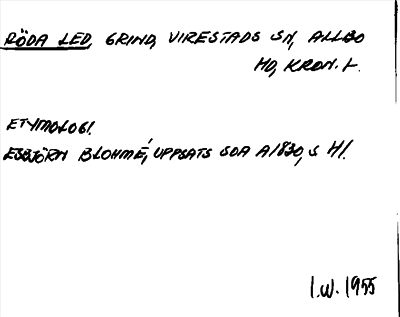 RÖDA LED, GRIND, VIRESTADS SN, ALLBO
HD, KRON. L.
ETYMOLOGI.
ESBJÖRN BLOHMÉ, UPPSATS SOA A1830, S 41.
I.W. 1955